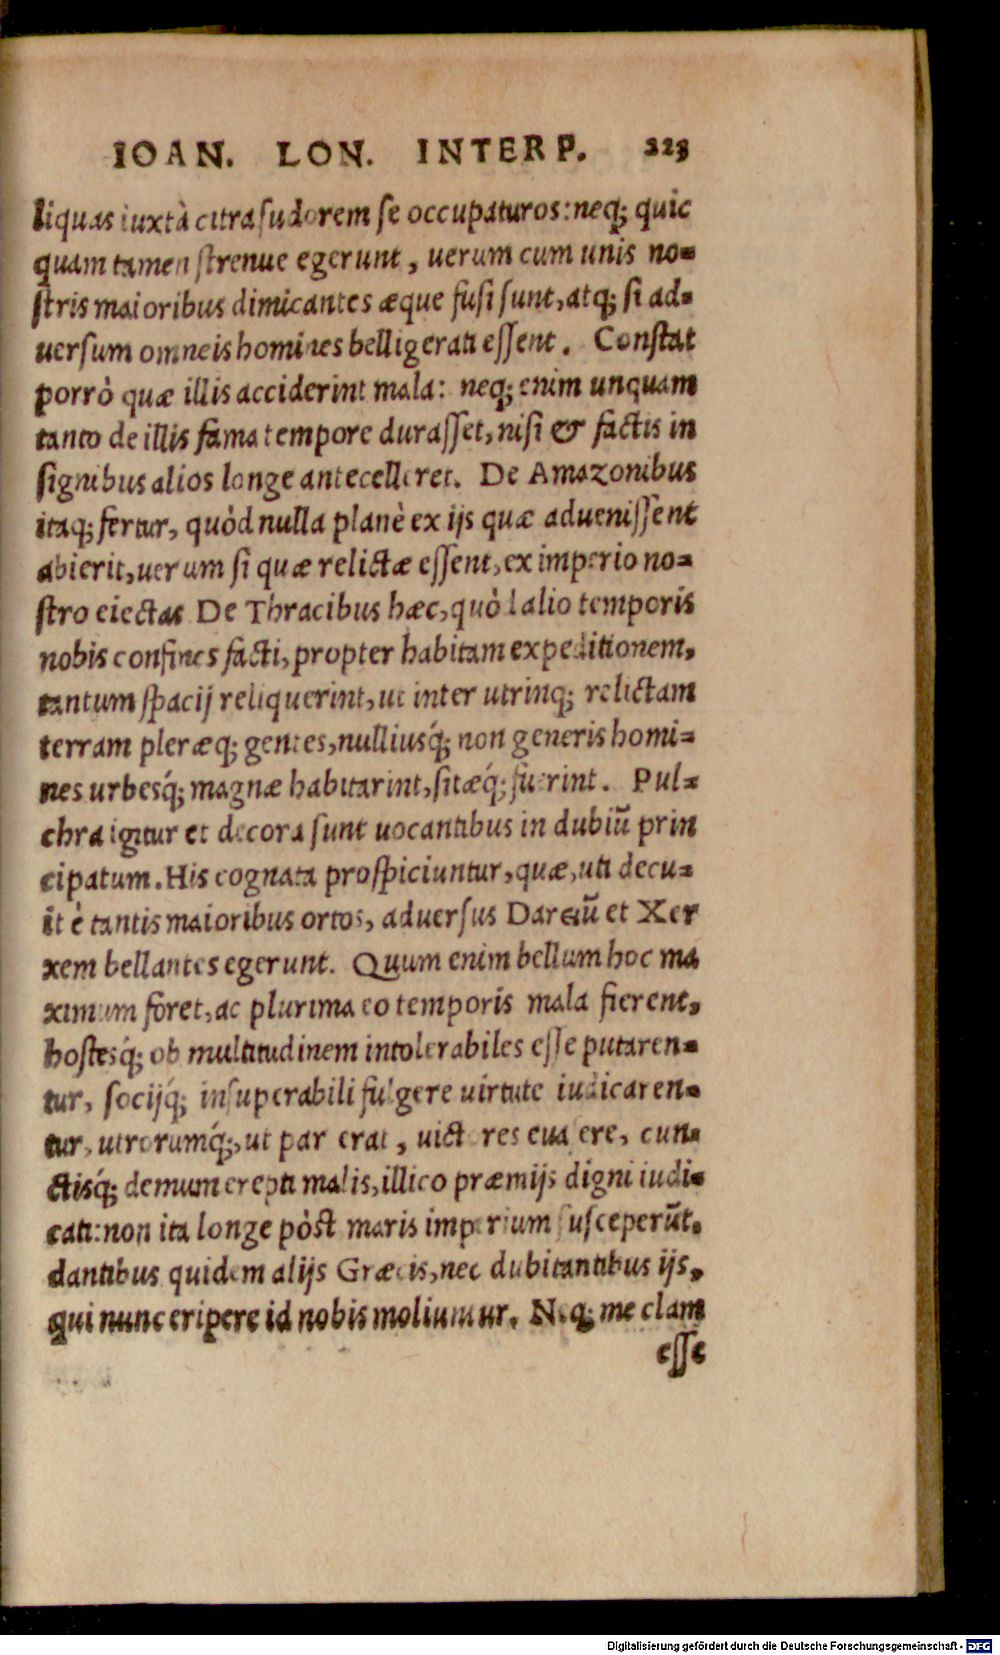 IOAN. LON. INTERP. 223
liquas iuxtà citra sudorem se occupaturos: neq; quic
quam tamen strenue egerunt, uerum cum unis no=
stris maioribus dimicantes æque fusi sunt, atq; si ad=
uersum omneis homines belligerati essent. Constat
porrò quæ illis acciderint mala: neq; enim unquam
tanto de illis fama tempore durasset, nisi & factis in
signibus alios longe antecelleret. De Amazonibus
itaq; fertur, quòd nulla planè ex ijs quæ aduenissent
abierit, uerum si quæ relictæ essent, ex imperio no=
stro eiectas De Thracibus hæc, quòd alio temporis
nobis confines facti, propter habitam expeditionem,
tantum spacij reliquerint, ut inter utrinq; relictam
terram pleræq; gentes, nulliusq́; non generis homi=
nes urbesq́; magnæ habitarint, sitæq́; fuerint. Pul=
chra igitur et decora sunt uocantibus in dubiũ prin
cipatum. His cognata prospiciuntur, quæ, uti decu=
it è tantis maioribus ortos, aduersus Dareiũ et Xer
xem bellantes egerunt. Quum enim bellum hoc ma
ximum foret, ac plurima eo temporis mala fierent,
hostesq́; ob multitudinem intolerabiles esse putaren=
tur, socijq́; insuperabili fulgere uirtute iudicaren=
tur, utrorumq́;, ut par erat, uictores euasere, cun=
ctisq́; demum erepti malis, illico præmijs digni iudi=
cati: non ita longe pòst maris imperium susceperũt,
dantibus quidem alijs Græcis, nec dubitantibus ijs,
qui nunc eripere id nobis moliuntur. Neq; me clam
esse
Digitalisierung gefördert durch die Deutsche Forschungsgemeinschaft - DFG